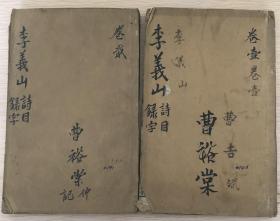 卷壹卷壹
曹吉
曹裕棠
李義山
李義山
詩目
錄字
卷貳
李義山
詩目
錄字
曹裕棠
記